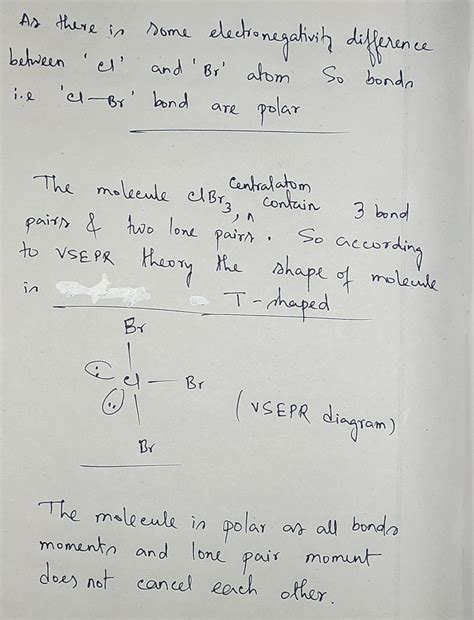 As there is some electronegativity difference
between 'cl' and 'Br' atom So bonds
i.e 'cl-Br' bond are polar
The molecule clBr3, centralatom contain 3 bond
pairs & two lone pairs. So according
to VSEPR theory the shape of molecule
is T-shaped
Br
cl - Br
(VSEPR diagram)
Br
The molecule is polar as all bonds
moments and lone pair moment
does not cancel each other.